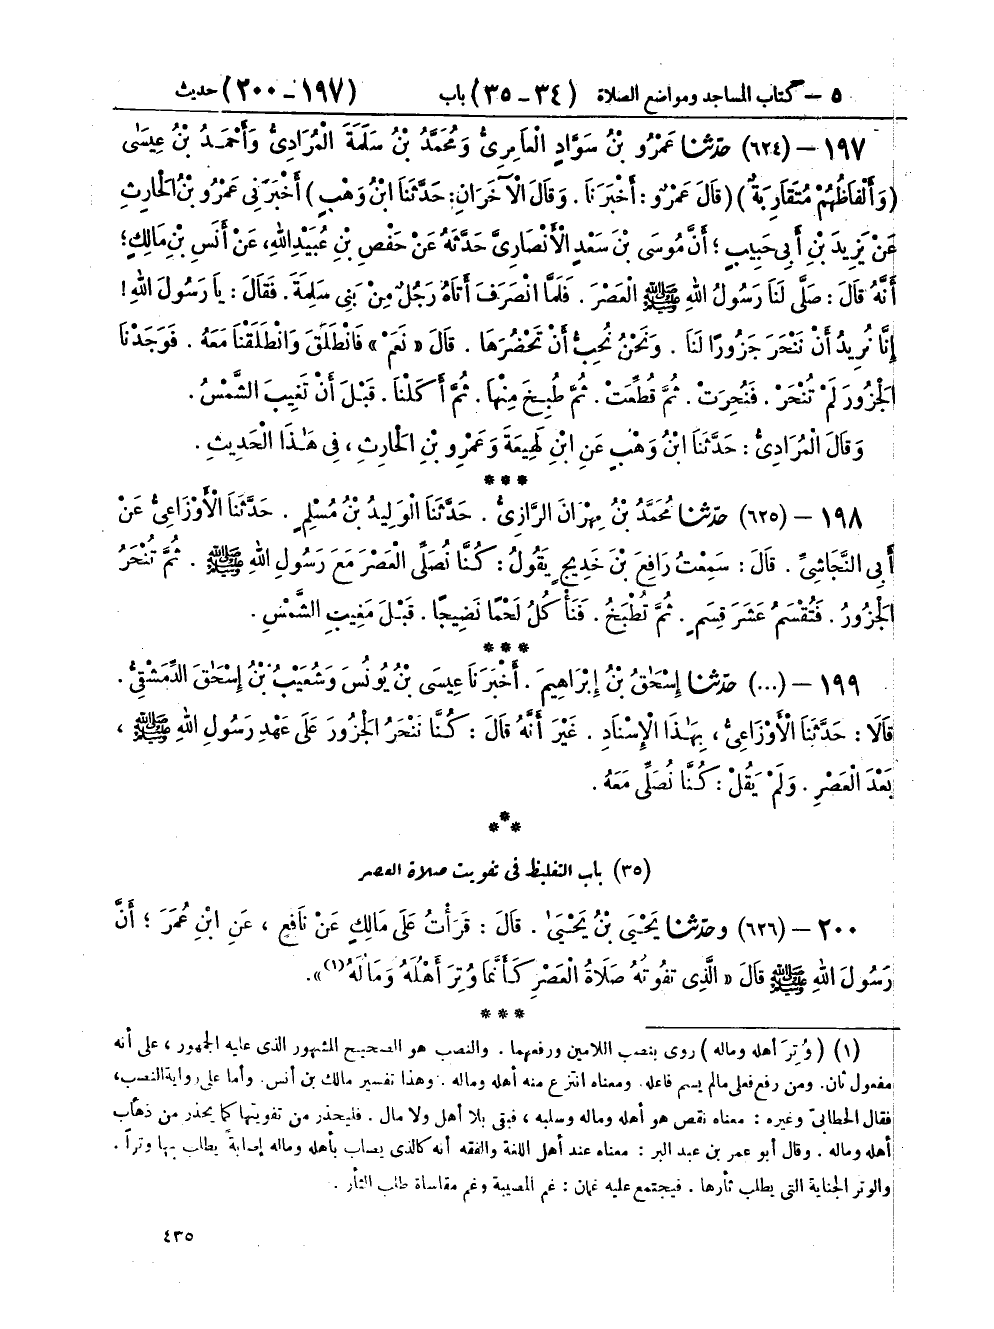 ٥ – كتاب المساجد ومواضع الصلاة (٣٤ – ٣٥) باب (١٩٧ – ٢٠٠) حديث
١٩٧ – (٦٢٤) حدّثنا عَمْرُو بْنُ سَوَّادٍ الْعَامِرِىُّ وَمُحَمَّدُ بْنُ سَلَمَةَ الْمُرَادِىُّ وَأَحْمَدُ بْنُ عِيسَىٰ
(وَأَلْفَاظُهُمْ مُتَقَارِبَةٌ) (قَالَ عَمْرٌو : أَخْبَرَنَا . وَقَالَ الْآخَرَانِ: حَدَّثَنَا ابْنُ وَهْبٍ) أَخْبَرَنِى عَمْرُو بْنُ الْحَارِثِ
عَنْ يَزِيدَ بْنِ أَبِى حَبِيبٍ ؛ أَنَّ مُوسَى بْنَ سَعْدٍ الْأَنْصَارِىَّ حَدَّثَهُ عَنْ حَفْصِ بْنِ عُبَيْدِاللهِ، عَنْ أَنَسِ بْنِ مَالِكٍ؛
أَنَّهُ قَالَ : صَلَّى لَنَا رَسُولُ اللهِ ﷺ الْعَصْرَ . فَلَمَّا انْصَرَفَ أَتَاهُ رَجُلٌ مِنْ بَنِى سَلِمَةَ . فَقَالَ : يَا رَسُولَ اللهِ !
إِنَّا نُرِيدُ أَنْ نَنْحَرَ جَزُورًا لَنَا . وَنَحْنُ نُحِبُّ أَنْ تَحْضُرَهَا . قَالَ « نَعَمْ » فَانْطَلَقَ وَانْطَلَقْنَا مَعَهُ . فَوَجَدْنَا
الْجَزُورَ لَمْ تُنْحَرْ . فَنُحِرَتْ . ثُمَّ قُطِّعَتْ . ثُمَّ طُبِخَ مِنْهَا . ثُمَّ أَكَلْنَا . قَبْلَ أَنْ تَغِيبَ الشَّمْسُ .
وَقَالَ الْمُرَادِىُّ : حَدَّثَنَا ابْنُ وَهْبٍ عَنِ ابْنِ لَهِيعَةَ وَعَمْرِو بْنِ الْحَارِثِ ، فِى هَٰذَا الْحَدِيثِ .
***
١٩٨ – (٦٢٥) حدّثنا مُحَمَّدُ بْنُ مِهْرَانَ الرَّازِىُّ . حَدَّثَنَا الْوَلِيدُ بْنُ مُسْلِمٍ . حَدَّثَنَا الْأَوْزَاعِىُّ عَنْ
أَبِى النَّجَاشِىِّ . قَالَ : سَمِعْتُ رَافِعَ بْنَ خَدِيجٍ يَقُولُ : كُنَّا نُصَلِّى الْعَصْرَ مَعَ رَسُولِ اللهِ ﷺ . ثُمَّ تُنْحَرُ
الْجَزُورُ . فَتُقْسَمُ عَشَرَ قِسَمٍ . ثُمَّ تُطْبَخُ . فَنَأْكُلُ لَحْمًا نَضِيجًا . قَبْلَ مَغِيبِ الشَّمْسِ .
***
١٩٩ – (...) حدّثنا إِسْحَٰقُ بْنُ إِبْرَاهِيمَ . أَخْبَرَنَا عِيسَى بْنُ يُونُسَ وَشُعَيْبُ بْنُ إِسْحَٰقَ الدِّمَشْقِىُّ .
قَالَا : حَدَّثَنَا الْأَوْزَاعِىُّ ، بِهَٰذَا الْإِسْنَادِ . غَيْرَ أَنَّهُ قَالَ : كُنَّا نَنْحَرُ الْجَزُورَ عَلَى عَهْدِ رَسُولِ اللهِ ﷺ ،
بَعْدَ الْعَصْرِ . وَلَمْ يَقُلْ : كُنَّا نُصَلِّى مَعَهُ .
***
(٣٥) باب التغليظ فى تفويت صلاة العصر
٢٠٠ – (٦٢٦) وحدّثنا يَحْيَى بْنُ يَحْيَىٰ . قَالَ : قَرَأْتُ عَلَى مَالِكٍ عَنْ نَافِعٍ ، عَنِ ابْنِ عُمَرَ ؛ أَنَّ
رَسُولَ اللهِ ﷺ قَالَ « الَّذِى تَفُوتُهُ صَلَاةُ الْعَصْرِ كَأَنَّمَا وُتِرَ أَهْلَهُ وَمَالَهُ(١)».
***
(١) (وُتِرَ أهله وماله) روى بنصب اللامين ورفعهما . والنصب هو الصحيح المشهور الذى عليه الجمهور ، على أنه
مفعول ثان. ومن رفع فعلى مالم يسم فاعله. ومعناه انتزع منه أهله وماله . وهذا تفسير مالك بن أنس. وأما على رواية النصب،
فقال الخطابىّ وغيره : معناه نقص هو أهله وماله وسلبه ، فبقى بلا أهل ولا مال . فليحذر من تفويتها كما يحذر من ذهاب
أهله وماله . وقال أبو عمر بن عبد البر : معناه عند أهل اللغة والفقه أنه كالذى يصاب بأهله وماله إصابةً يطلب بها وتراً .
والوتر الجناية التى يطلب ثأرها . فيجتمع عليه غمان : غم المصيبة وغم مقاساة طلب الثأر .
٤٣٥